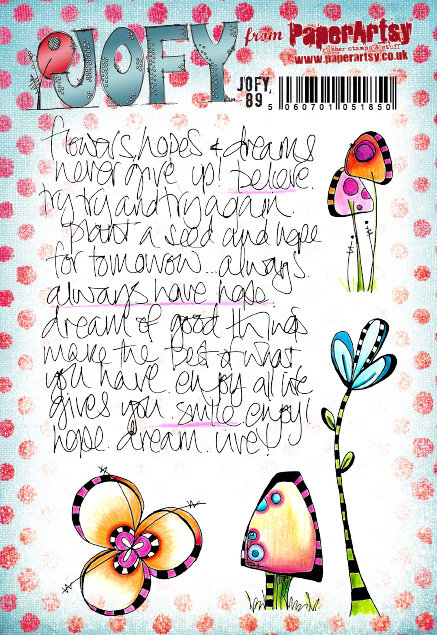 JOFY from PaperArtsy
rubber stamps & stuff
www.paperartsy.co.uk
JOFY
89
5 060701 051850
flowers, hopes & dreams
never give up! believe.
try try and try again.
plant a seed and hope
for tomorrow... always.
always have hope.
dream of good things
make the best of what
you have. enjoy all life
gives you. smile enjoy!
hope. dream. live!